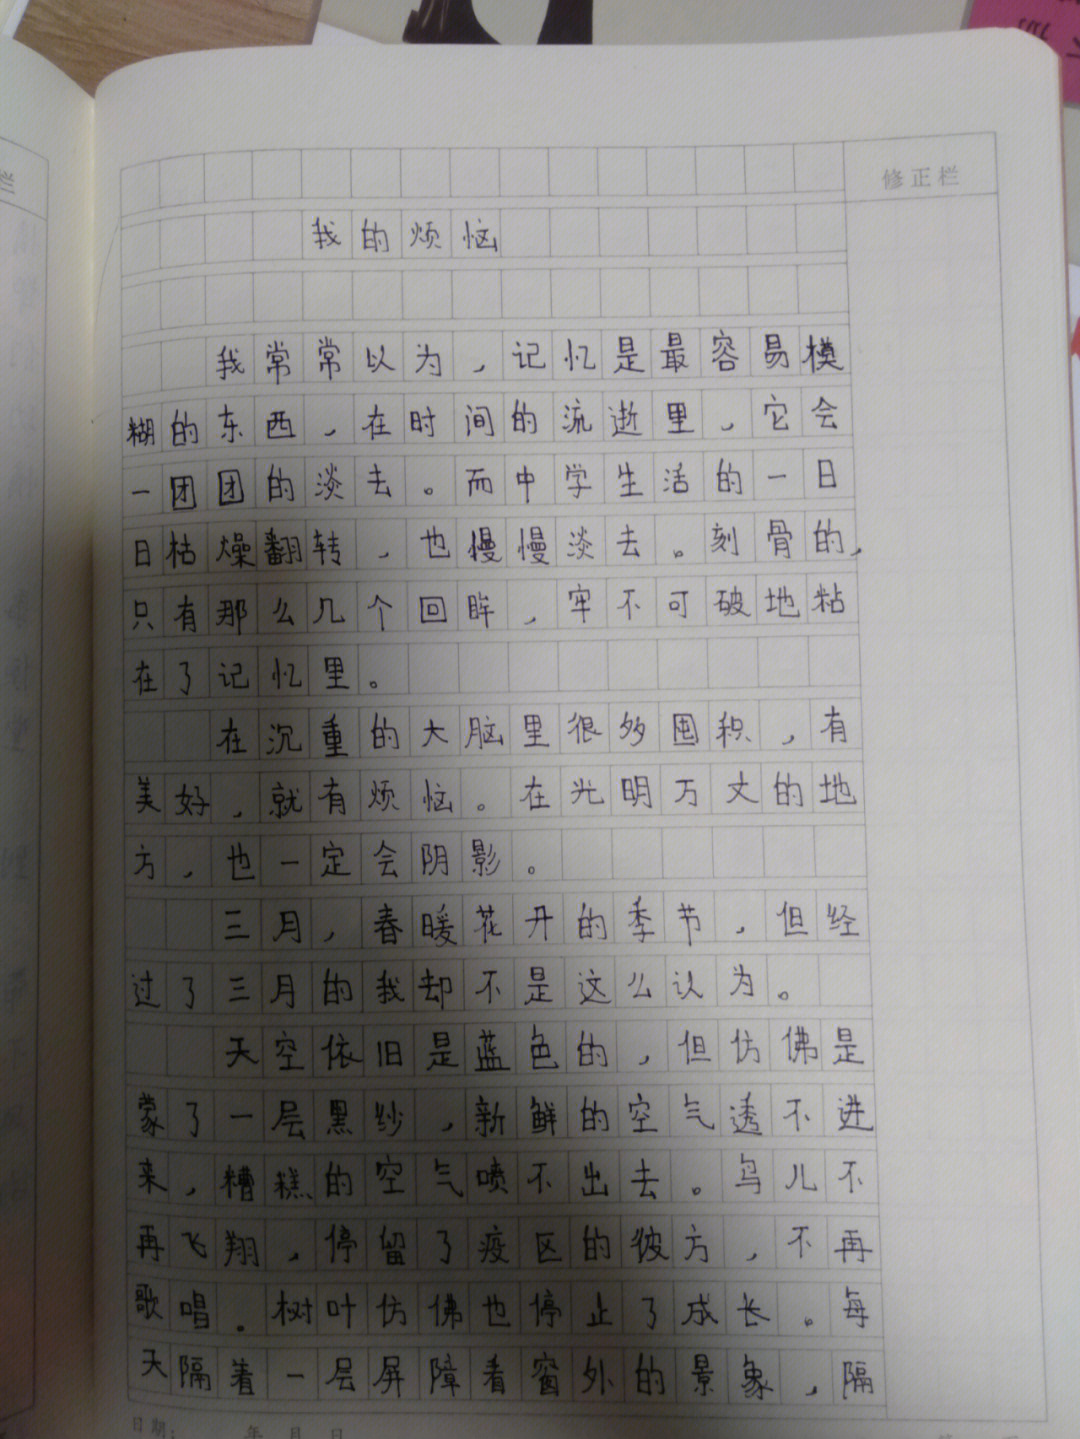 修正栏
我的烦恼
我常常以为，记忆是最容易模
糊的东西，在时间的流逝里，它会
一团团的淡去。而中学生活的一日
日枯燥翻转，也慢慢淡去。刻骨的，
只有那么几个回眸，牢不可破地粘
在了记忆里。
在沉重的大脑里很多囤积，有
美好，就有烦恼。在光明万丈的地
方，也一定会阴影。
三月，春暖花开的季节，但经
过了三月的我却不是这么认为。
天空依旧是蓝色的，但仿佛是
蒙了一层黑纱，新鲜的空气透不进
来，糟糕的空气喷不出去。鸟儿不
再飞翔，停留了疫区的彼方，不再
歌唱。树叶仿佛也停止了成长。每
天隔着一层屏障看窗外的景象，隔
日期： 年 月 日